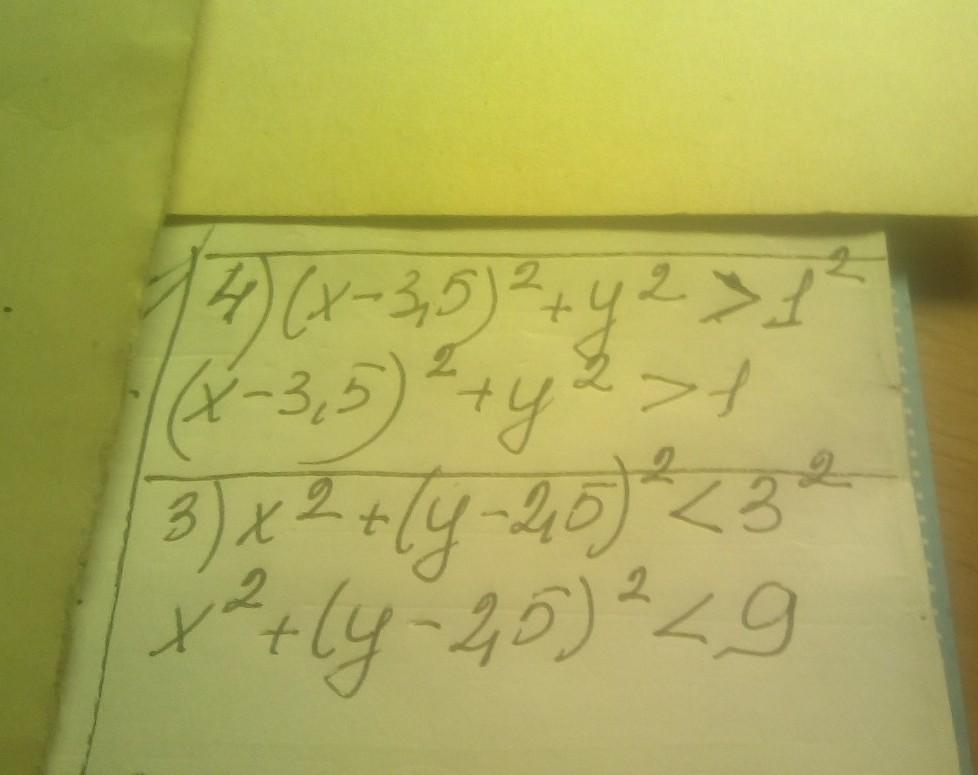 4) (x-3,5)² + y² > 1²
(x-3,5)² + y² > 1
3) x² + (y-2,5)² < 3²
x² + (y-2,5)² < 9